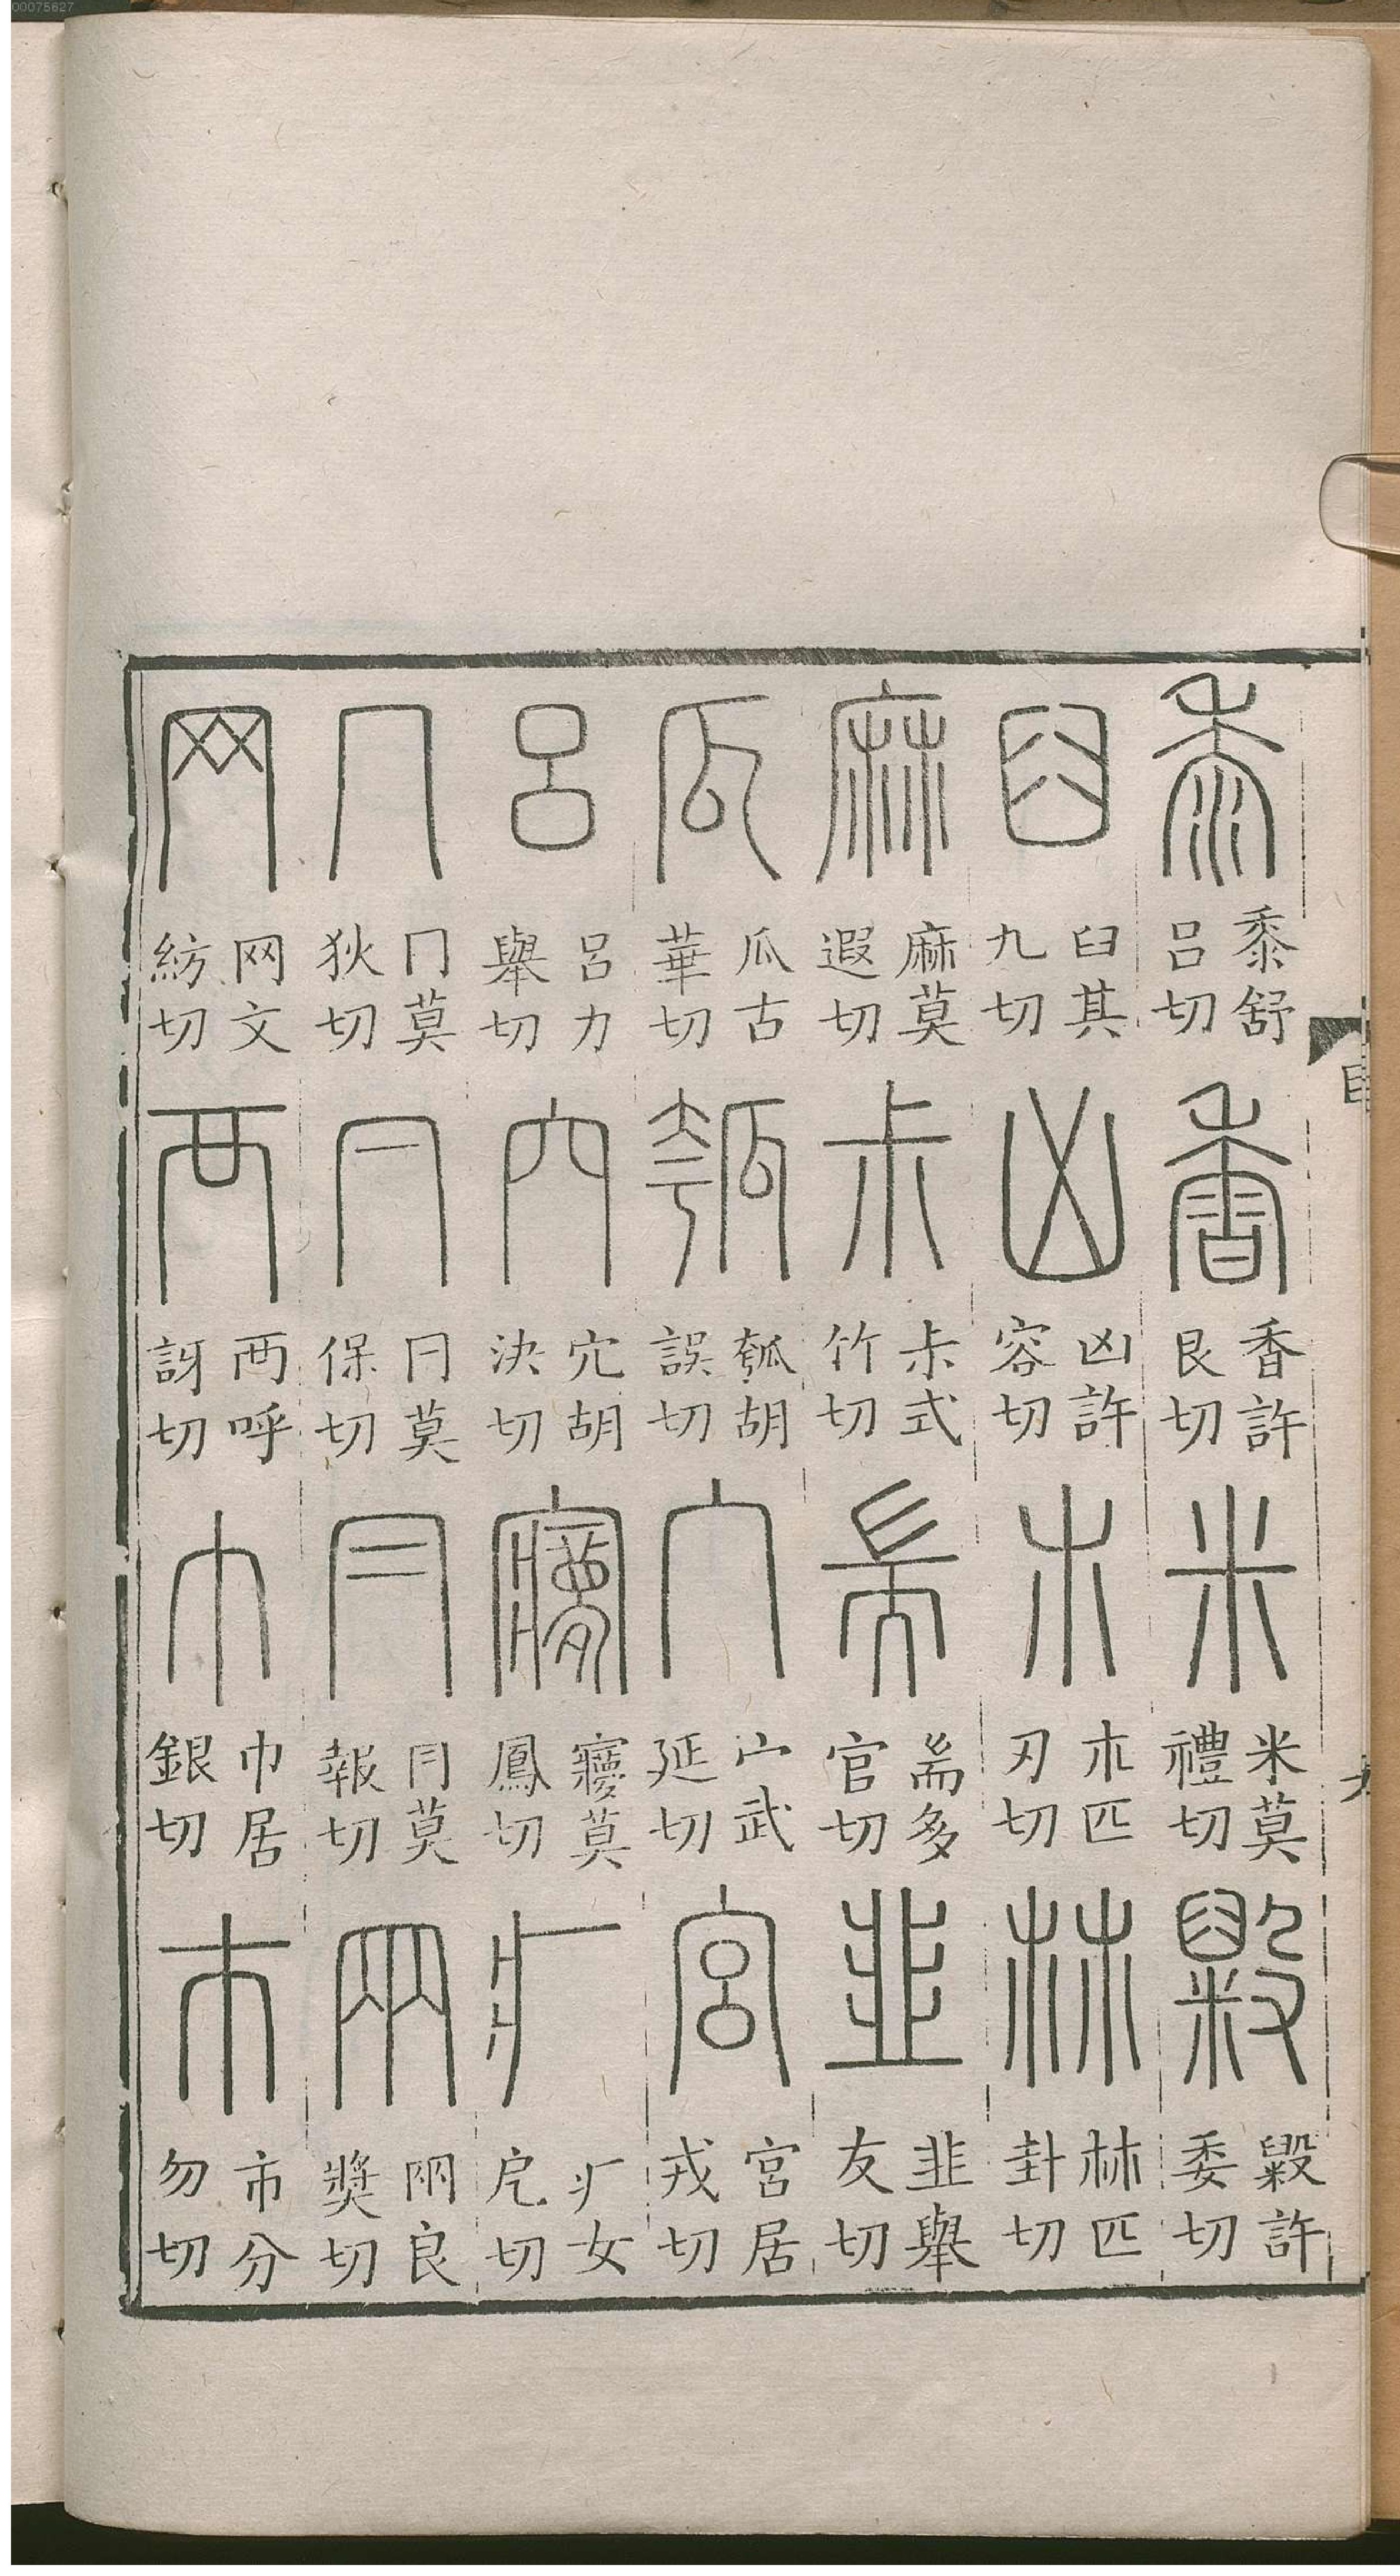 00075627
黍 黍舒吕切 香 香許艮切 米 米莫禮切 毇 毇許委切
臼 臼其九切 凶 凶許容切 朩 朩匹刃切 𣏟 𣏟匹卦切
麻 麻莫遐切 尗 尗式竹切 耑 耑多官切 韭 韭舉友切
瓜 瓜古華切 瓠 瓠胡誤切 宀 宀武延切 宮 宮居戎切
呂 呂力舉切 穴 穴胡決切 㝱 㝱莫鳳切 疒 疒女戹切
冂 冂莫狄切 冃 冃莫保切 冃 冃莫報切 㒳 㒳良獎切
网 网文紡切 襾 襾呼訝切 巾 巾居銀切 巿 巿分勿切